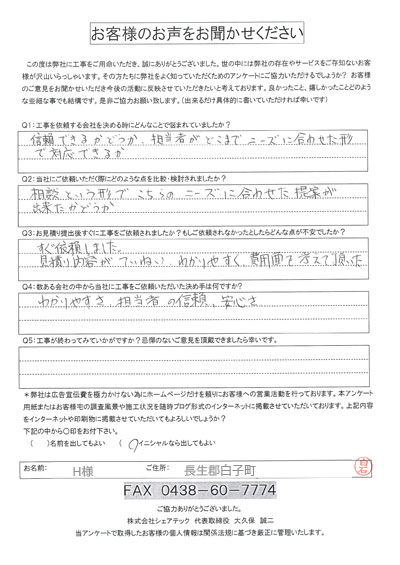 お客様のお声をお聞かせください
この度は弊社に工事をご用命いただき、誠にありがとうございます。世の中には弊社の存在やサービスをご存知ないお客
様が沢山いらっしゃいます。その方たちに弊社をよく知っていただくためのアンケートにご協力いただけるでしょうか？ お客様
のご意見をお聞かせいただき今後の活動に反映させていただきたいと考えております。良かったこと、嬉しかったことどのよう
な些細な事でも結構です。是非ご協力お願い致します。(出来るだけ具体的に書いていただければ幸いです)
Q1：工事を依頼する会社を決める時にどんなことで悩まれていましたか？
信頼できるかどうか、担当者がどこまでニーズに合わせた形
で対応できるか
Q2：当社にご依頼いただく際にどのような点を比較・検討されましたか？
相談という形でこちらのニーズに合わせた提案が
出来たかどうか
Q3：お見積り提出後すぐに工事をご依頼されましたか？もしご依頼されなかったとしたらどんな点が不安でしたか？
すぐ依頼しました。
見積り内容がていねい、わかりやすく、費用面を考えて頂いた
Q4：数ある会社の中から当社に工事をご依頼いただいた決め手は何ですか？
わかりやすさ、担当者の信頼、安心さ
Q5：工事が終わってみていかがですか？忌憚のないご意見を頂戴できましたら幸いです。
＊弊社は広告宣伝費を極力かけない為にホームページだけを頼りにお客様への営業活動を行っております。本アンケート
用紙またはお客様宅の調査風景や施工状況を随時ブログ形式のインターネットに掲載させていただいております。上記内容
をインターネットや印刷物に掲載させていただいてもよろしいでしょうか？
下記の中から〇印をお付下さい。
( )名前を出してもよい (〇)イニシャルなら出してもよい
お名前: H様 ご住所: 長生郡白子町
FAX 0438-60-7774
ご協力ありがとうございました。
株式会社シェアテック 代表取締役 大久保 誠二
当アンケートで取得したお客様の個人情報は関係法規に基づき厳正に管理いたします。